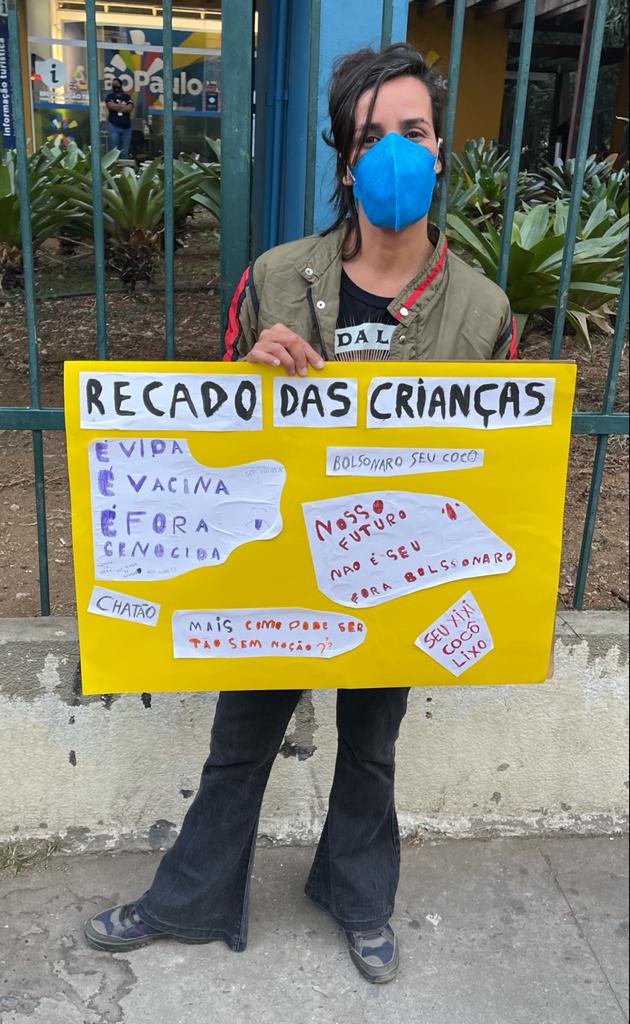 informação turística
i
São Paulo
DAL
RECADO DAS CRIANÇAS
É VIDA
É VACINA
É FORA
GENOCIDA
BOLSONARO SEU COCÔ
NOSSO
FUTURO
NÃO É SEU
FORA BOLSONARO
CHATÃO
MAIS COMO PODE SER
TÃO SEM NOÇÃO??
SEU XIXI
COCÔ
LIXO